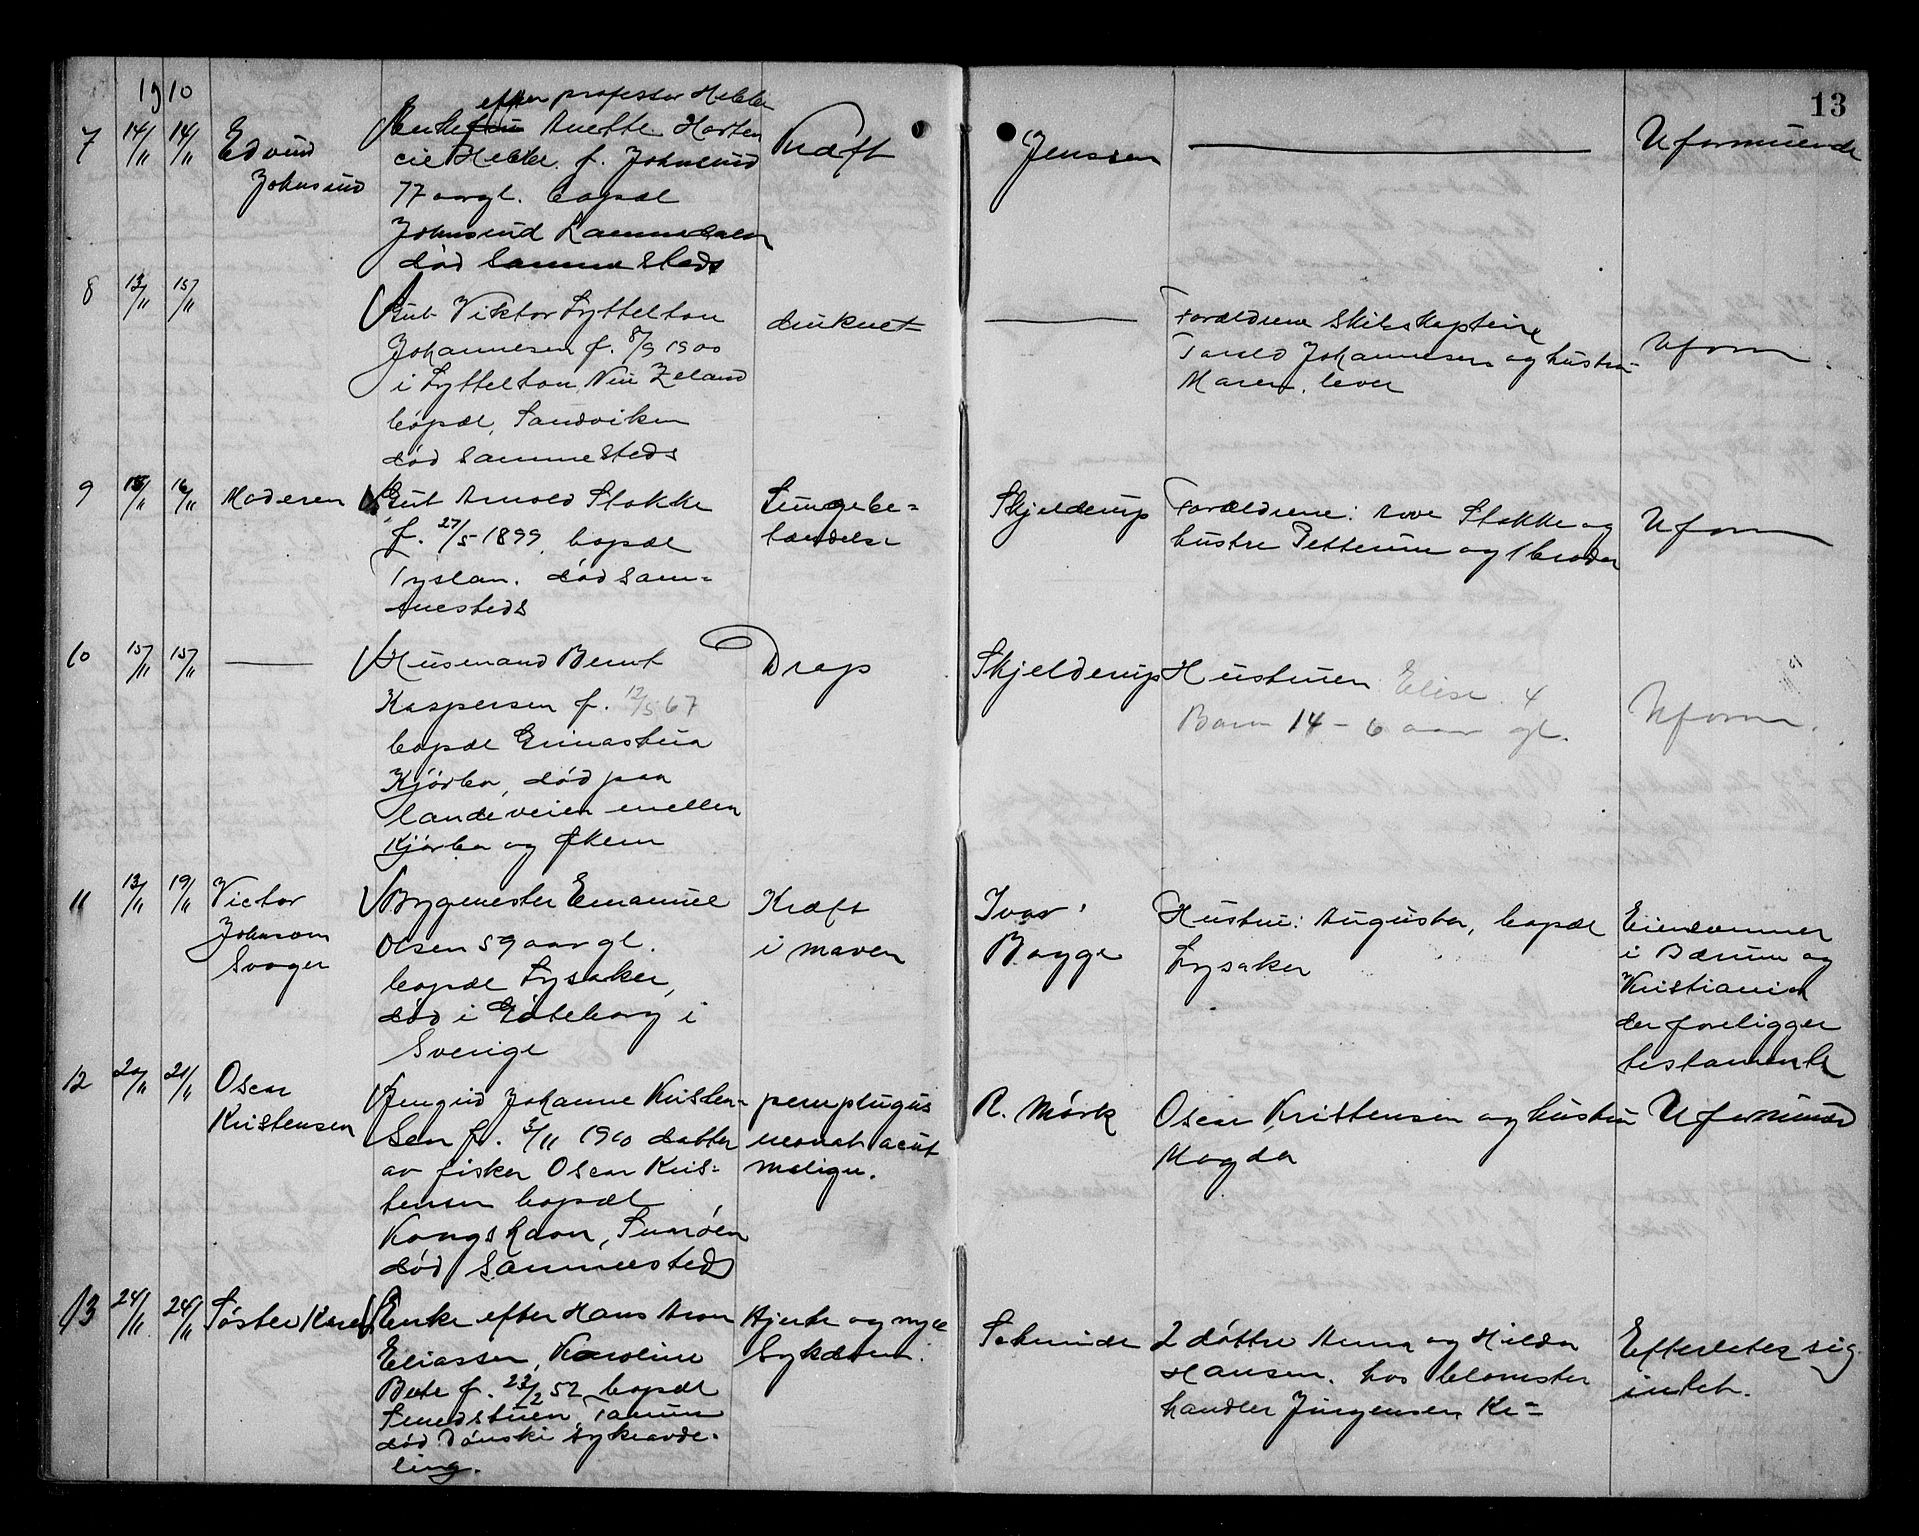 13
1910
7
14/11
14/11
Edvind
Johnsrud
efter professor Helde
Enkefru Anette Horten
cie Helde f. Johnsrud
77 aar gl. bopæl
Johnsrud Lommedalen
død sammesteds
Kræft
Jenssen
Uformuende
8
13/11
15/11
Gut Viktor Lyttelton
Johannesen f. 8/9 1900
i Lyttelton Nii Zeland
bopæl, Sandviken
død sammesteds
druknet
Forældrene Skibskaptein
Johannesen og hustru
Maren lever
Uform
9
15/11
16/11
Moderen
Gut Arnold Stokke
f. 27/5 1899 bopæl
død sam-
mesteds
Lungebe-
tændelse
Skjelderup
Forældrene: Stokke og
hustru Petterine og 1 broder
Uform
10
15/11
15/11
Husmand Bernt
Kaspersen f. 12/5 67
bopæl
Kjørbo, død paa
landeveien mellem
Kjørbo og
Drap
Skjelderup
Hustruen Elise 4
Barn 14 - 6 aar gl.
Uform.
11
13/11
19/11
Victor
Johnson
Svoger
Bygmester Emanuel
Olsen 59 aar gl.
bopæl Lysaker,
død i Gøteborg i
Sverige
Kræft
i maven
Ivar
Bagge
Hustru: Augusta, bopæl
Lysaker
Eiendommer
i Bærum og
Kristiania
der foreligger
testamente
12
20/11
21/11
Oscar
Kristensen
Jengrid Johanne Kristen-
sen f. 3/11 1910 datter
av fisker Oscar Kris-
tensen bopæl
Kongshavn,
død sammesteds
pemphigus
neonat acut
malign.
R. Mørk
Oscar Kristensen og hustru
Magda
Uformuende
13
24/11
24/11
Søster Karen
Enke efter Hans Aron
Eliassen, Karoline
Bete f. 23/2 52 bopæl
Smedstuen, Tanum
død Dønski sykeavde-
ling.
Hjerte og nyre
sykdom.
Schmidt
2 døttre Anna og Hilda
Hansen. hos blomster
handler Jürgensen Kr-
Efterlater sig
intet.